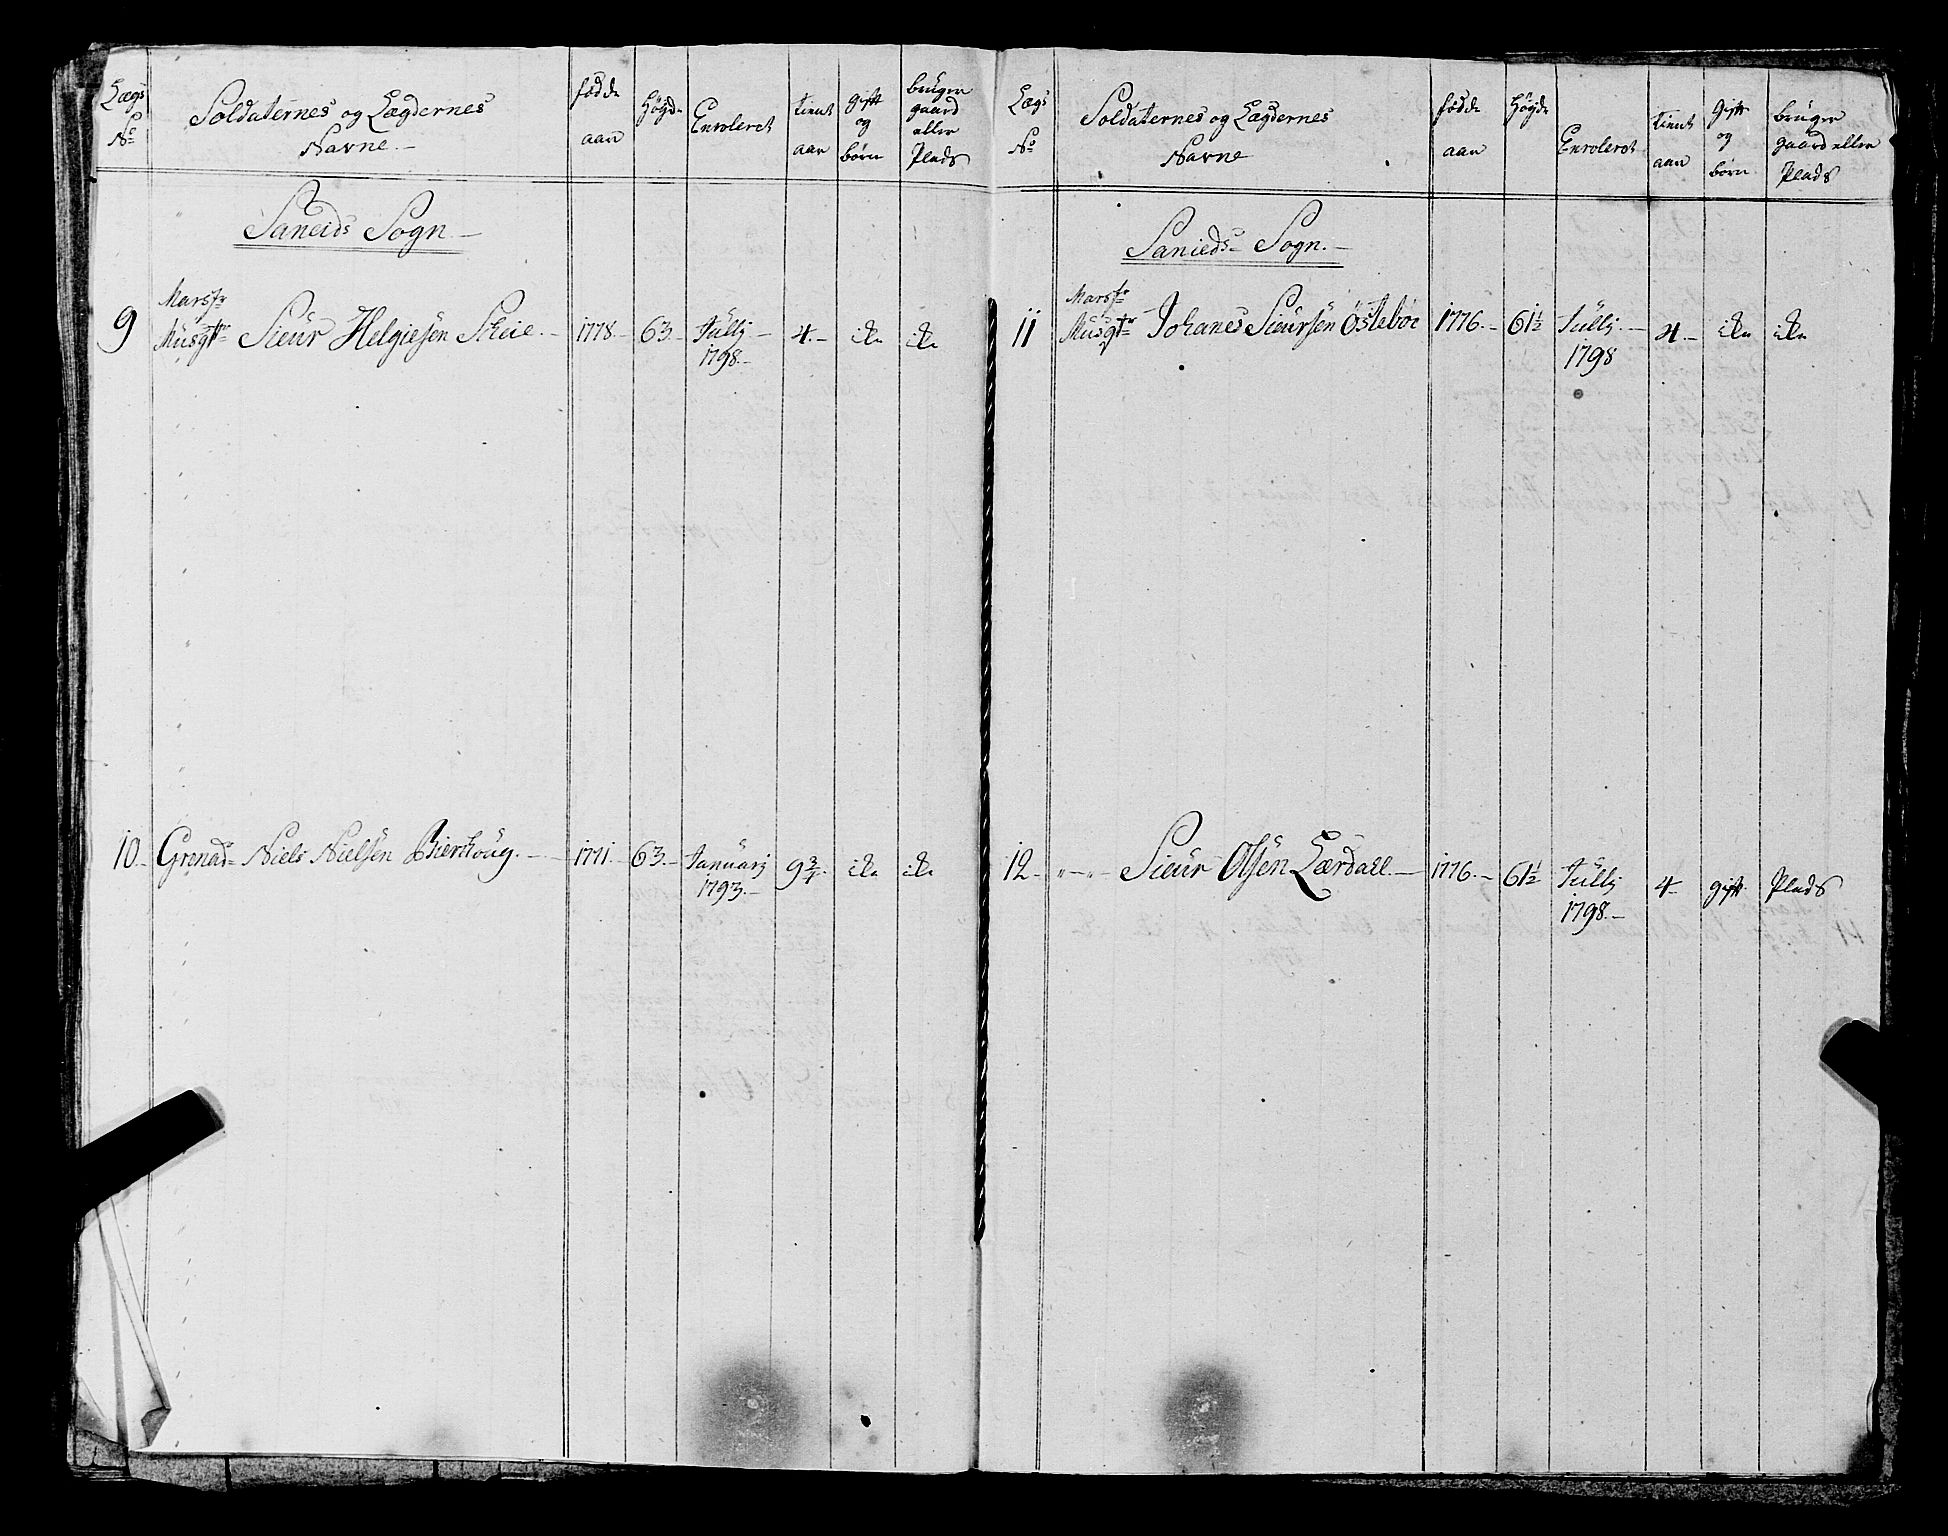 Lægs No
Soldaternes og Lægdernes
Navne.
fødde aar
Høyde
Enroleret
tient aar
gift og børn
bruger gaard eller Plads
Saneids Sogn
9 Marsfr Musqtr Sieur Helgiesen Skeie. 1778. 63. Jullj 4. ike ike
1798.
10. Grenad: Niels Nielsen Bierhoug. 1771. 63. Januarj 9¾ ike ike
1793.
Lægs No
Soldaternes og Lægdernes
Navne
fødde aar
Høyde
Enroleret
tient aar
gift og børn
bruger gaard eller Plads
Sanieds Sogn.
11 Marsfr Musqtr Johanes Sieursen Östeböe 1776. 61½ Jullj 4. ike ike
1798
12 "—"— Sieur Olsen Lærdall. 1776. 61½ Jullj 4 gift Plads
1798.